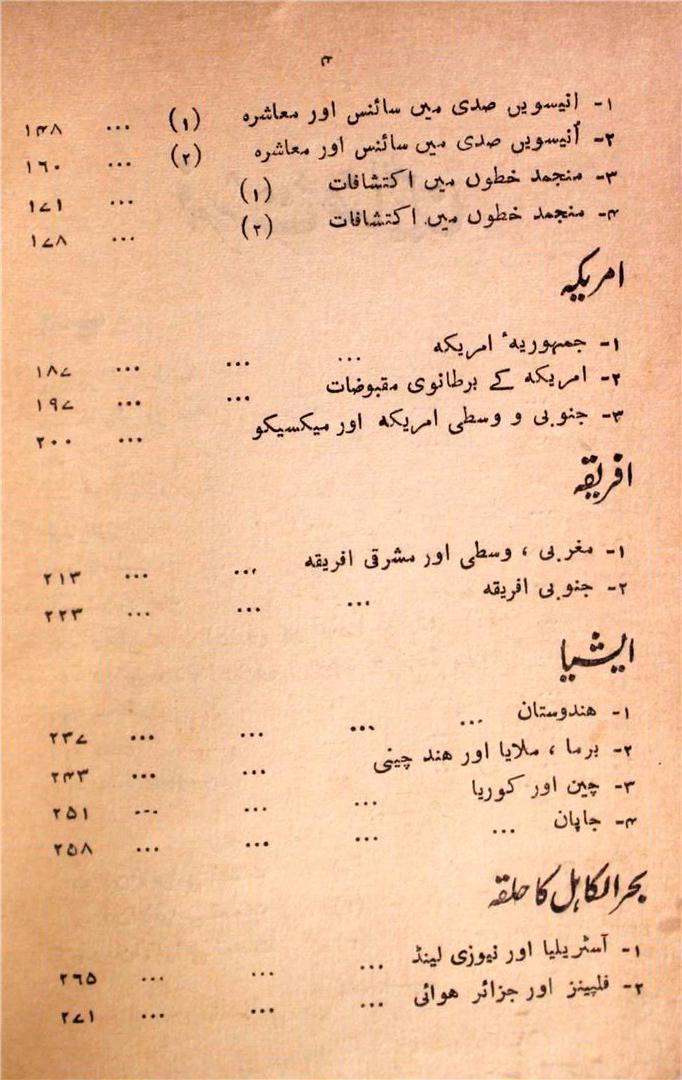 ۴
۱- انیسویں صدی میں سائنس اور معاشرہ (۱) ... ۱۴۸
۲- اُنیسویں صدی میں سائنس اور معاشرہ (۲) ... ۱۶۰
۳- منجمد خطوں میں اکتشافات (۱) ... ۱۷۱
۴- منجمد خطوں میں اکتشافات (۲) ... ۱۷۸
امریکہ
۱- جمہوریۂ امریکہ ... ... ... ۱۸۷
۲- امریکہ کے برطانوی مقبوضات ... ... ۱۹۷
۳- جنوبی و وسطی امریکہ اور میکسیکو ... ۲۰۰
افریقہ
۱- مغربی ، وسطی اور مشرقی افریقہ ... ... ۲۱۳
۲- جنوبی افریقہ ... ... ... ۲۲۳
ایشیا
۱- ہندوستان ... ... ... ... ۲۳۷
۲- برما ، ملایا اور ہند چینی ... ... ۲۴۳
۳- چین اور کوریا ... ... ... ۲۵۱
۴- جاپان ... ... ... ... ۲۵۸
بحرالکاہل کا حلقہ
۱- آسٹریلیا اور نیوزی لینڈ ... ... ... ۲۶۵
۲- فلپینز اور جزائر ہوائی ... ... ... ۲۷۱